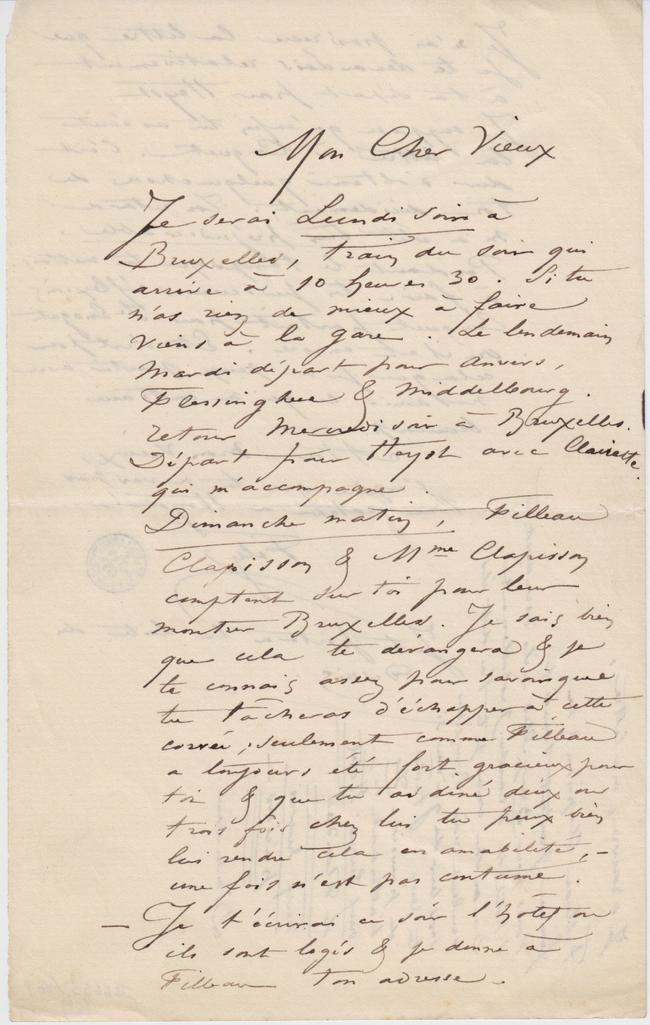 Mon Cher Vieux
Je serai Lundi soir à
Bruxelles, train du soir qui
arrive à 10 heures 30. Si tu
n'as rien de mieux à faire
viens à la gare. Le lendemain
Mardi départ pour Anvers,
Flessinghue & Middelbourg.
retour Mercredi soir à Bruxelles.
Départ pour Heyst avec Clairette
qui m'accompagne.
Dimanche matin, Filleau
Clapisson & Mme Clapisson
comptent sur toi pour leur
montrer Bruxelles. Je sais bien
que cela te dérangera & je
te connais assez pour savoir que
tu tâcheras d'échapper à cette
corvée; seulement comme Filleau
a toujours été fort gracieux pour
toi & que tu as diné deux ou
trois fois chez lui tu peux bien
lui rendre cela en amabilité, –
une fois n'est pas coutume.
— Je t'écrirai ce soir l'hôtel ou
ils sont logés & je donne à
Filleau ton adresse.